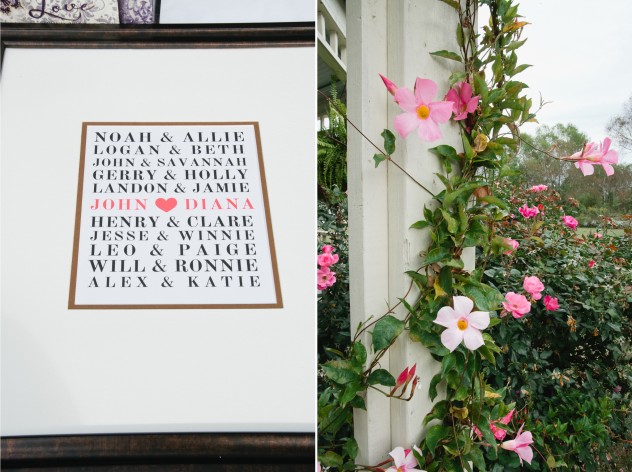 Love
NOAH & ALLIE
LOGAN & BETH
JOHN & SAVANNAH
GERRY & HOLLY
LANDON & JAMIE
JOHN ♥ DIANA
HENRY & CLARE
JESSE & WINNIE
LEO & PAIGE
WILL & RONNIE
ALEX & KATIE